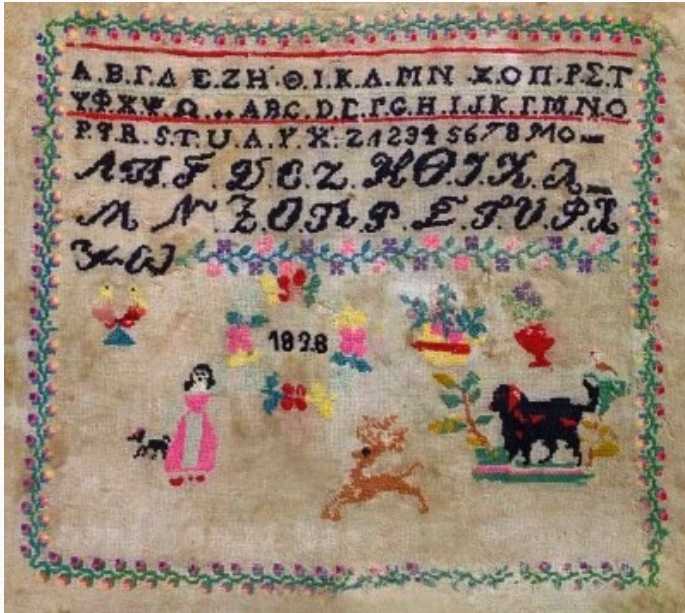 Α.Β.Γ.Δ.Ε.Ζ.Η.Θ.Ι.Κ.Λ.Μ.Ν.Ξ.Ο.Π.Ρ.Σ.Τ
Υ.Φ.Χ.Ψ.Ω...A.B.C.D.E.F.G.H.I.J.K.Γ.M.N.O
P.Q.R.S.T.U.Λ.Y.X.Z12345678910
Α.Β.Γ.Δ.Ε.Ζ.Η.Θ.Ι.Κ.Λ
Μ.Ν.Ξ.Ο.Π.Ρ.Σ.Τ.Υ.Φ.Χ
Ψ.Ω
1898